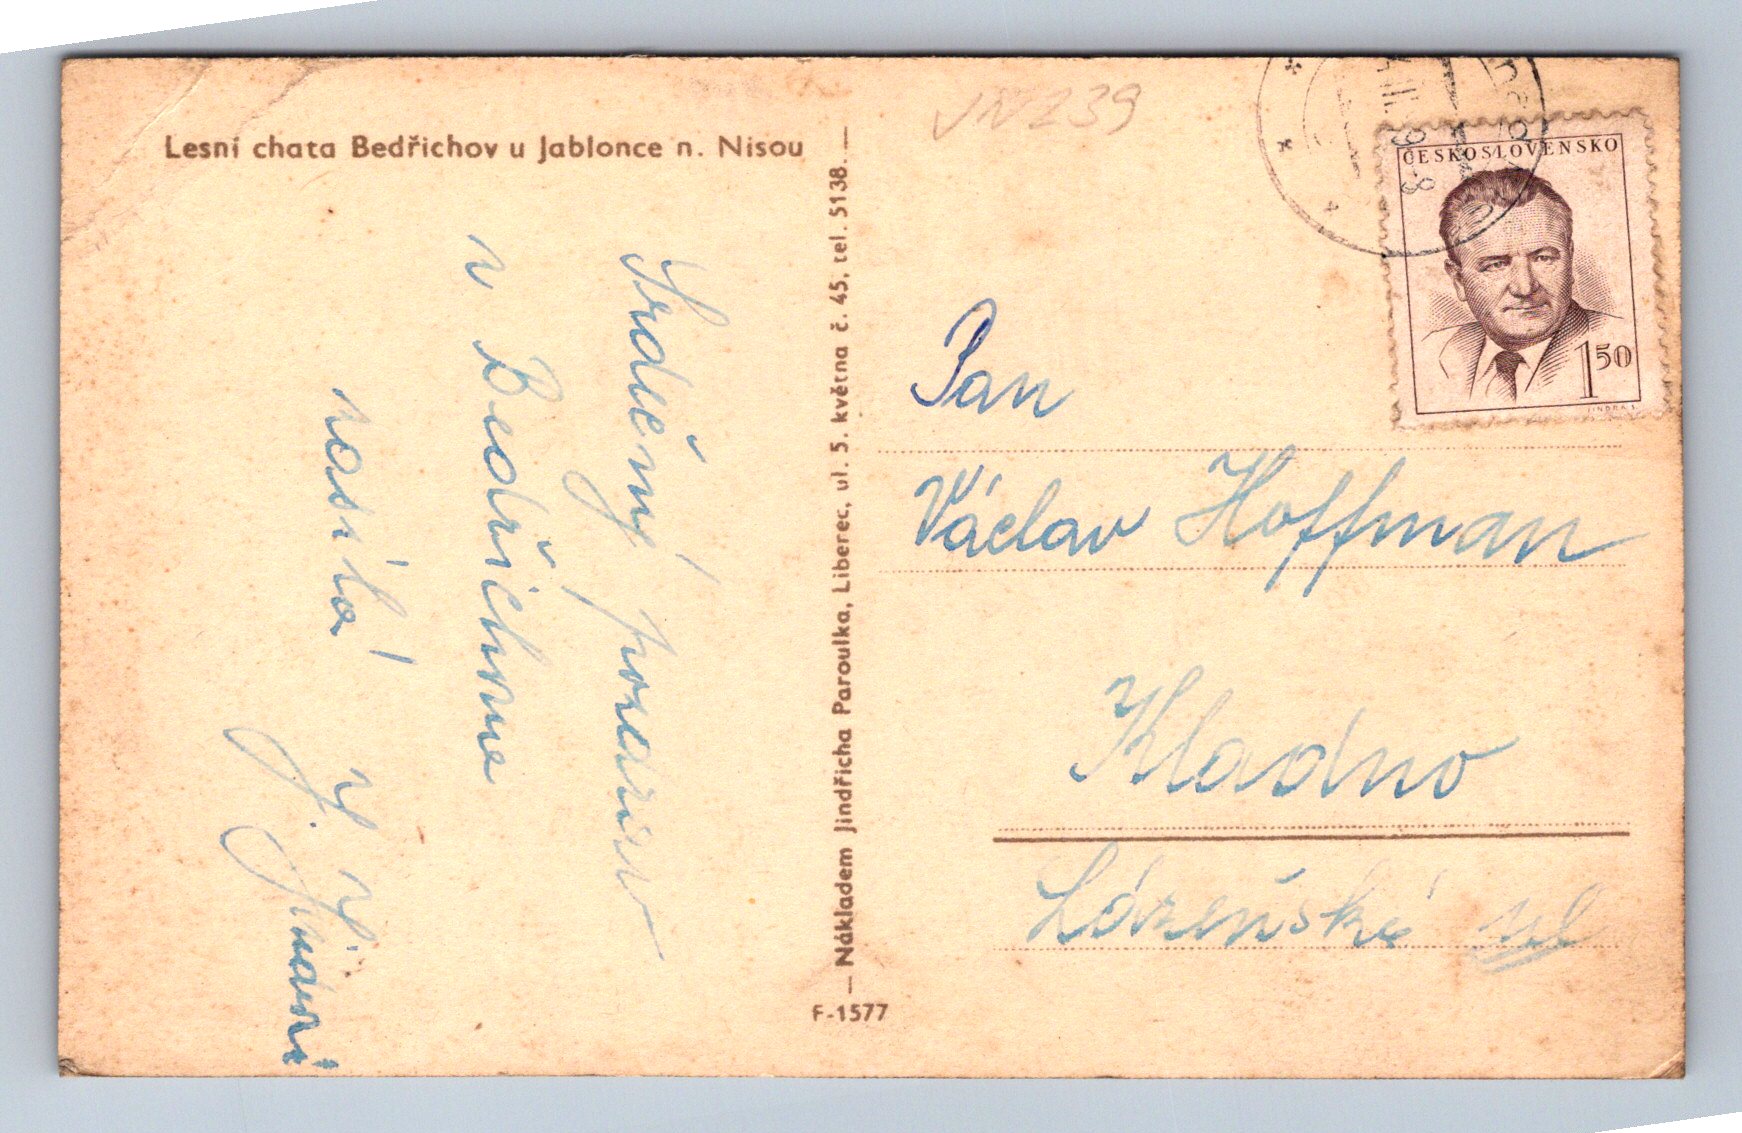 Lesní chata Bedřichov u Jablonce n. Nisou
Srdečný pozdrav
z Bedřichova
zasílá
— Nákladem Jindřicha Paroulka, Liberec, ul. 5. května č. 45. tel. 5138. —
F-1577
ČESKOSLOVENSKO
150
JINDRA S.
Pan
Václav Hoffman
Kladno
Lázeňská ul